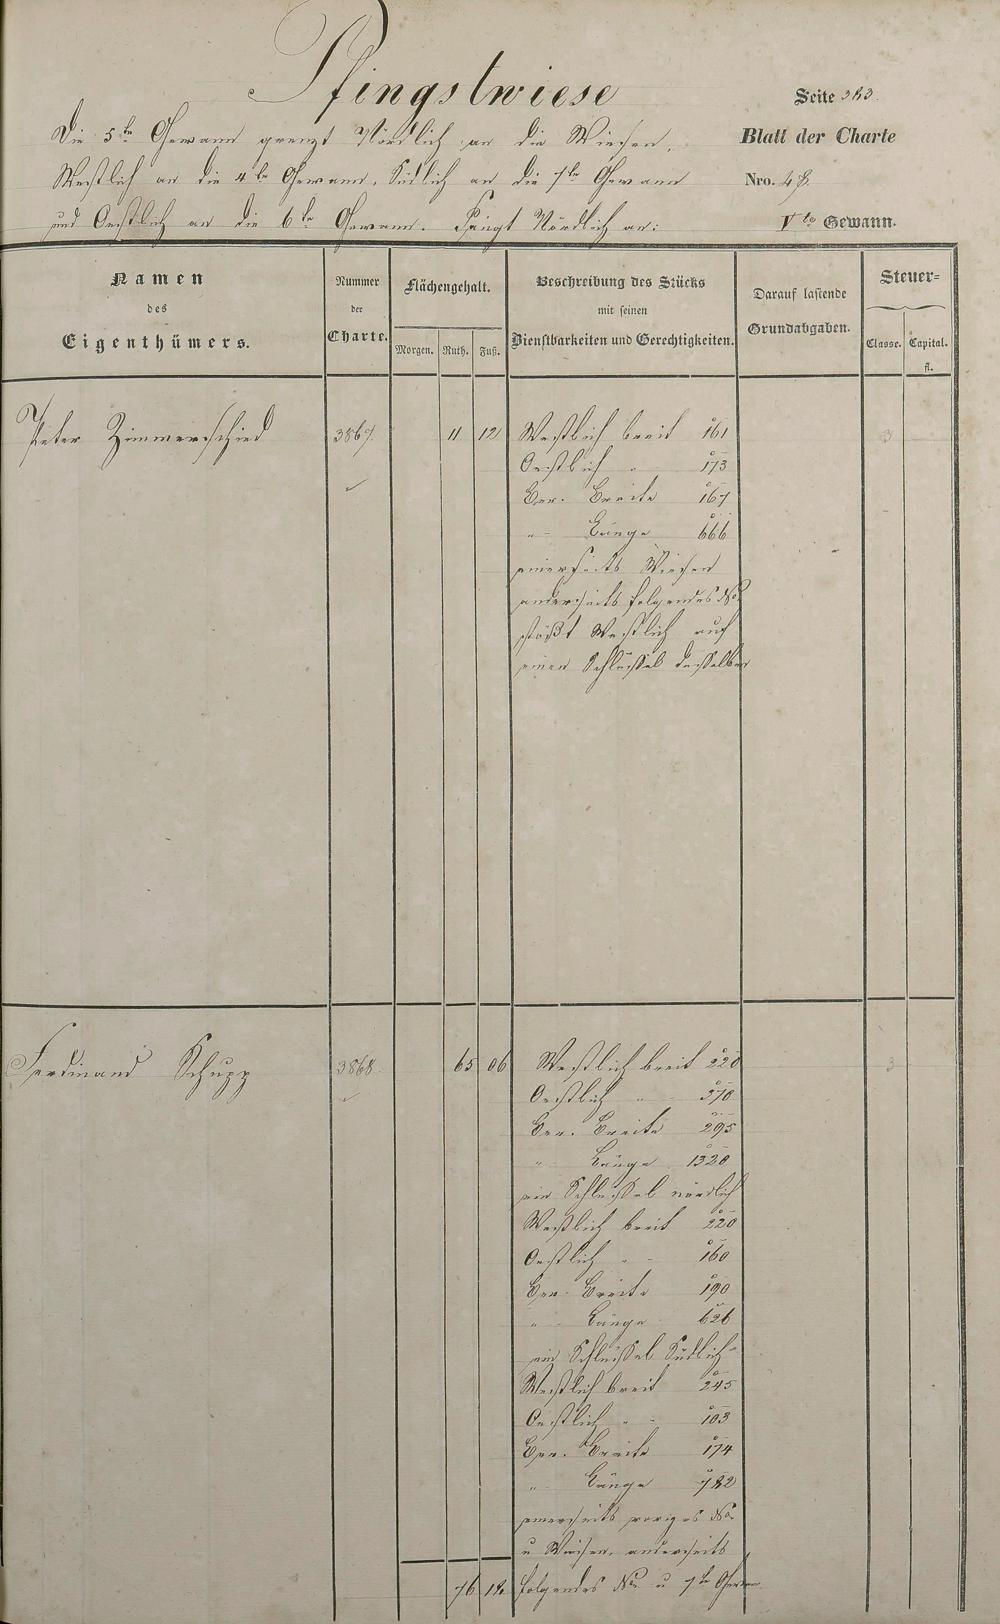 Pfingstwiese
Seite 383.
Die 5te Gewann grenzt Nördlich an die Wiesen,
Blatt der Charte
Westlich an die 4te Gewann, Südlich an die 7te Gewann
Nro. 48.
und Oestlich an die 6te Gewann. Fängt Nördlich an:
Vte Gewann.
Namen
des
Eigenthümers.
Nummer
der
Charte.
Flächengehalt.
Morgen. Ruth. Fuß.
Beschreibung des Stücks
mit seinen
Dienstbarkeiten und Gerechtigkeiten.
Darauf lastende
Grundabgaben.
Steuer=
Classe. Capital.
fl.
Peter Zimmerschied 3867. 11 12 Westlich breit 161 3
Oestlich " 173
Ger. Breite 167
" Länge 666
einerseits Wiesen
anderseits folgendes No
stößt Westlich auf
einen Schlüssel desselben
Ferdinand Schupp 3868. 65 06 Westlich breit 220 3
Oestlich " 370
Ger. Breite 295
" Länge 1320
ein Schlüssel nördlich
Westlich breit 220
Oestlich " 160
Ger. Breite 190
" Länge 626
ein Schlüssel Südlich
Westlich breit 245
Oestlich " 103
Ger. Breite 174
" Länge 782
einerseits voriges No
u Wiesen, anderseits
76 18 folgendes No u 7te Gewann